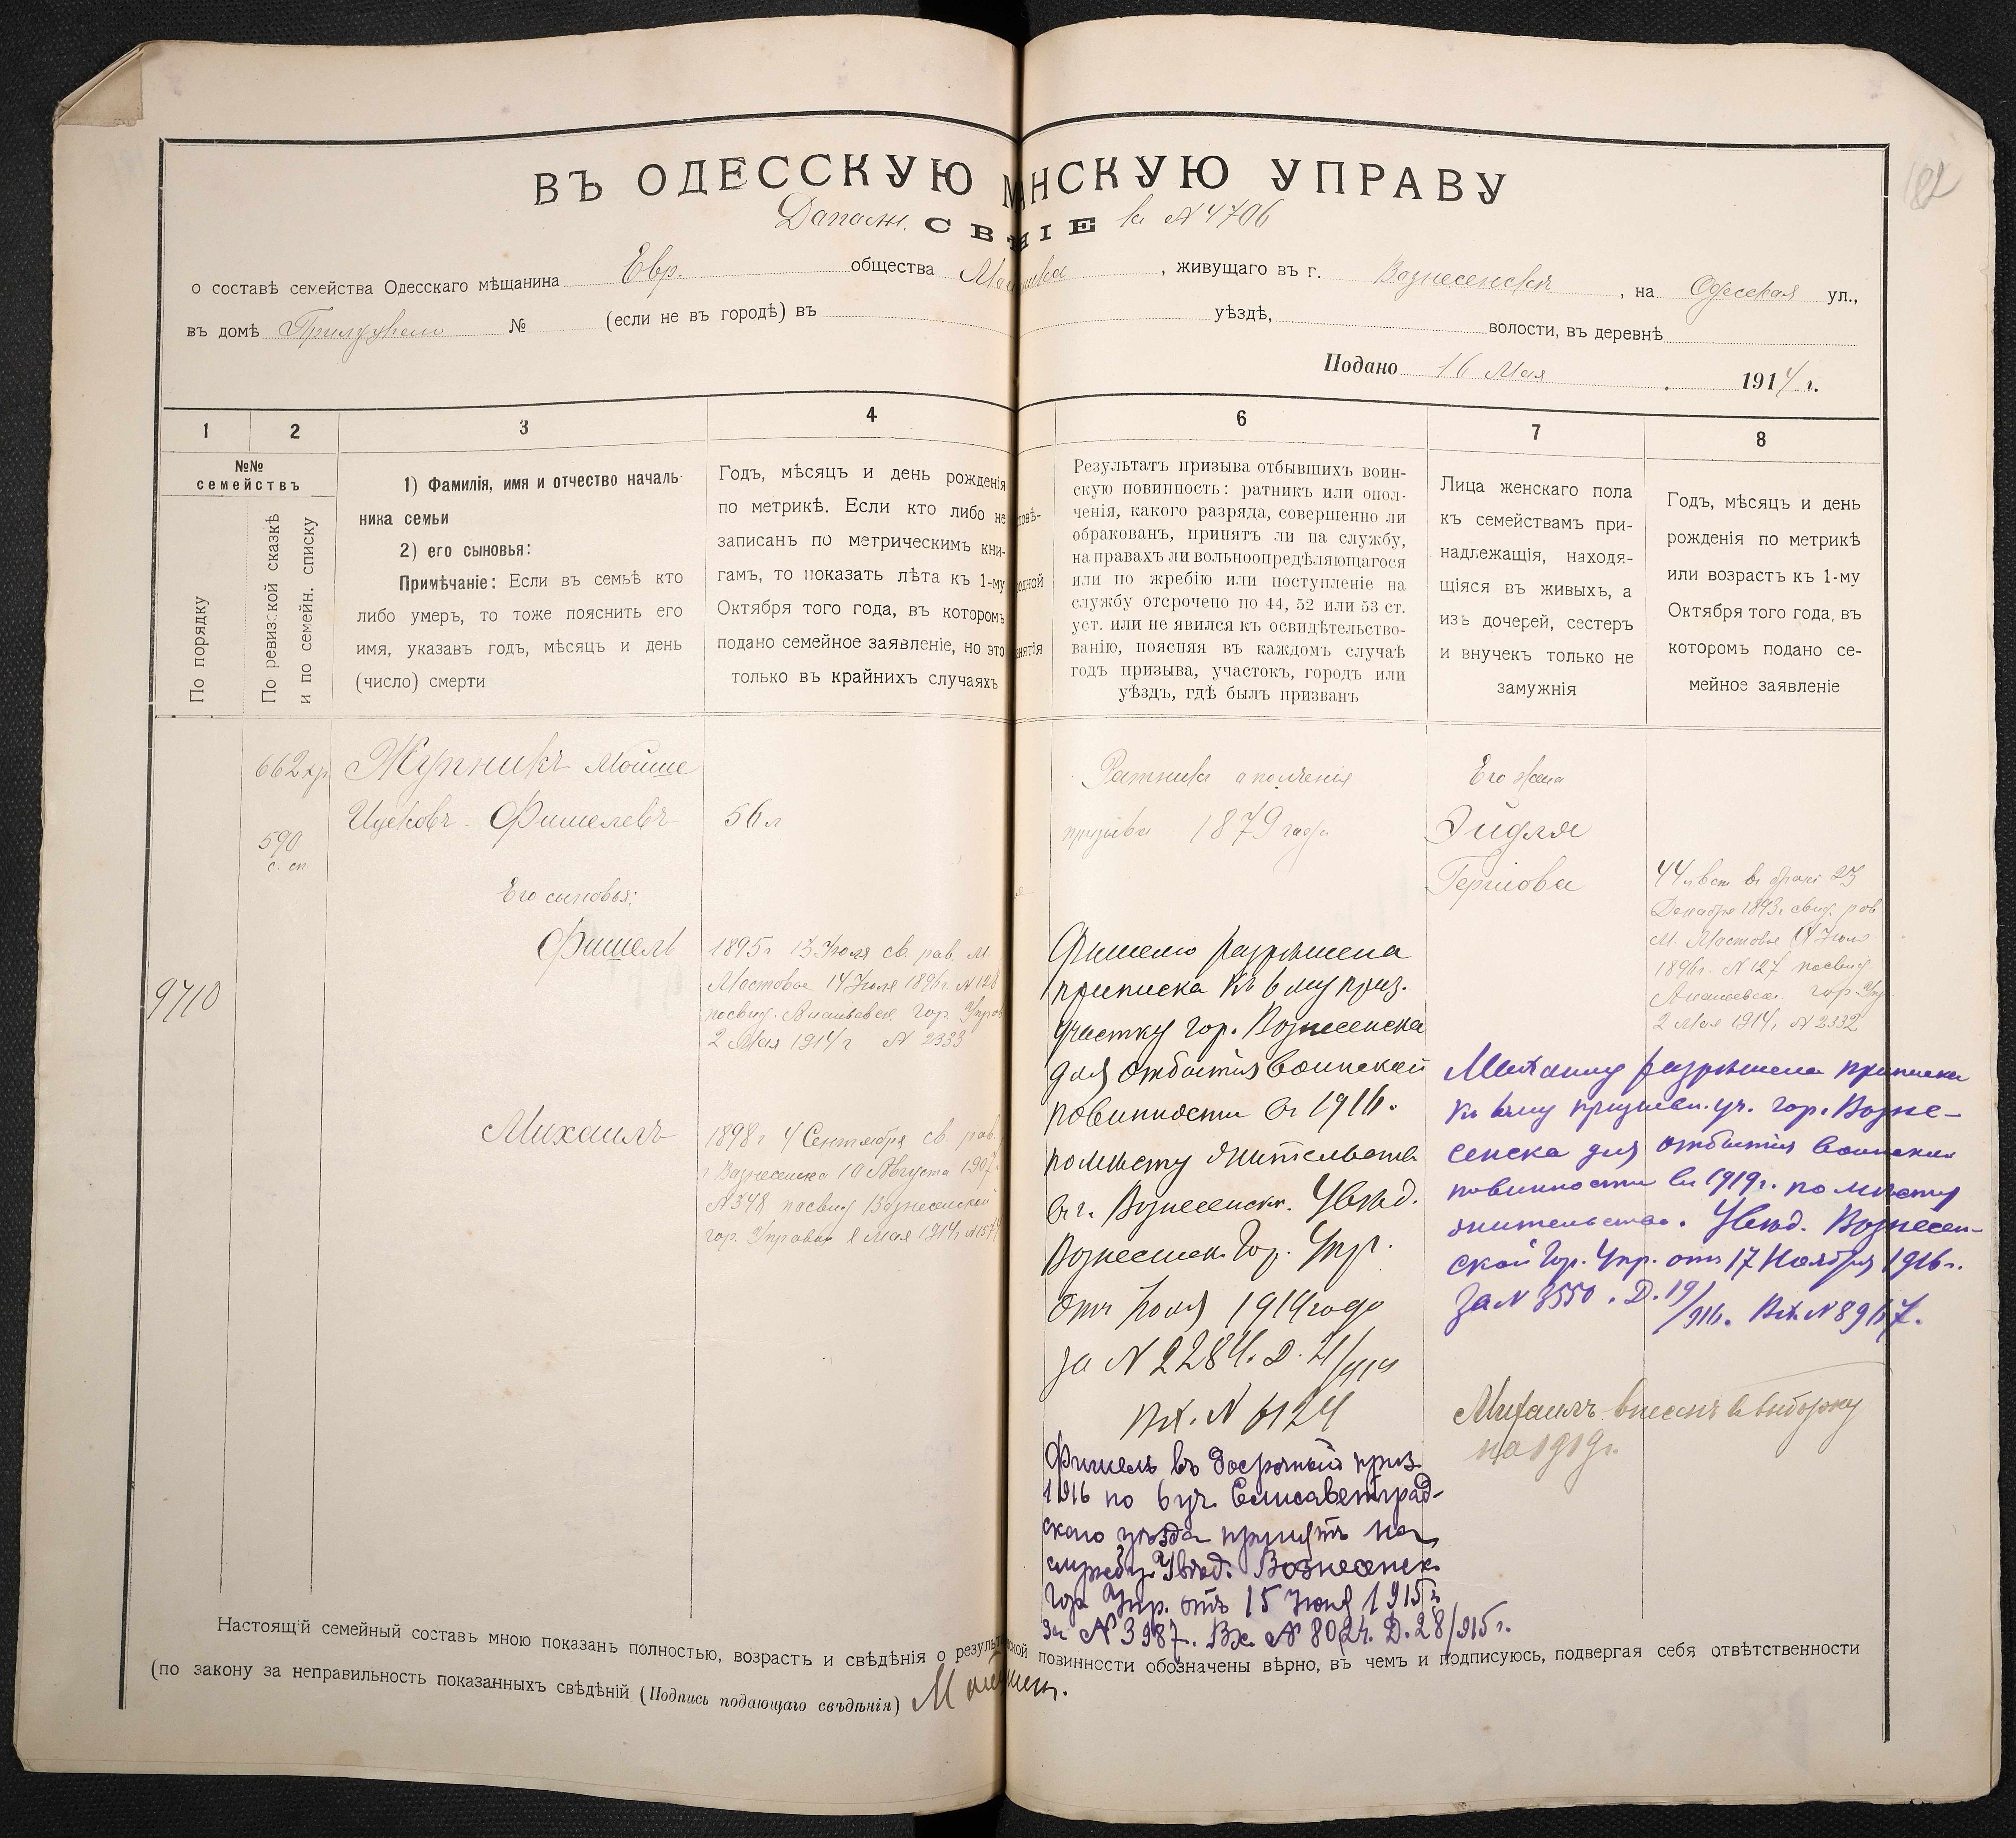 182
ВЪ ОДЕССКУЮ М НСКУЮ УПРАВУ
СВ НІЕ къ № 4706
о составѣ семейства Одесскаго мѣщанина Евр. общества , живущаго въ г. Вознесенскѣ , на Одесская ул.,
въ домѣ № (если не въ городѣ) въ уѣздѣ, волости, въ деревнѣ
Подано 16 Мая 1914 г.
1 2 3 4 6 7 8
№№ семействъ
По порядку
По ревизской сказкѣ и по семейн. списку
1) Фамилія, имя и отчество началь-
ника семьи
2) его сыновья:
Примѣчаніе: Если въ семьѣ кто
либо умеръ, то тоже пояснить его
имя, указавъ годъ, мѣсяцъ и день
(число) смерти
Годъ, мѣсяцъ и день рожденія
по метрикѣ. Если кто либо не
записанъ по метрическимъ кни-
гамъ, то показать лѣта къ 1-му
Октября того года, въ которомъ
подано семейное заявленіе, но это
только въ крайнихъ случаяхъ
Результатъ призыва отбывшихъ воин-
скую повинность: ратникъ или опол-
ченія, какого разряда, совершенно ли
обракованъ, принятъ ли на службу,
на правахъ ли вольноопредѣляющагося
или по жребію или поступленіе на
службу отсрочено по 44, 52 или 53 ст.
уст. или не явился къ освидѣтельство-
ванію, поясняя въ каждомъ случаѣ
годъ призыва, участокъ, городъ или
уѣздъ, гдѣ былъ призванъ
Лица женскаго пола
къ семействамъ при-
надлежащія, находя-
щіяся въ живыхъ, а
изъ дочерей, сестеръ
и внучекъ только не
замужнія
Годъ, мѣсяцъ и день
рожденія по метрикѣ
или возрастъ къ 1-му
Октября того года, въ
которомъ подано се-
мейное заявленіе
9710
662 хр
590
с. сп
Журникъ Мойше
Ицковъ Фишелевъ
56 л
Его сыновья:
Фишель
1895 г 13 Іюля св. рав. м.
Мостовое 14 Іюля 1896 г. № 128
посвид. Ананьевск. Гор. Управ
2 Мая 1914 г № 2333
Михаилъ
1898 г 4 Сентября св. рав.
г Вознесенска 10 Августа 1907 г
№ 348 посвид Вознесенской
гор. Управы 8 Мая 1914 г
Ратникъ ополченія
призыва 1879 года
Фишелю разрѣшена
приписка къ 6 му приз.
участку гор. Вознесенска
для отбытія воинской
повинности въ 1916.
по мѣсту жительства
въ г. Вознесенскѣ. Увѣд.
Вознесенск. Гор. Упр.
отъ Іюля 1914 года
за № 2284. Д.
Вх. № 6124
Фишель въ досрочный приз.
1916 по 6 уч. Елисаветград-
скаго уѣзда принятъ на
службу. Увѣд. Вознесенск.
Гор. Упр. отъ 15 Іюня 1915 г.
за № 3987. Вх. № 8024. Д. 28/915 г.
Его жена
Эйдля
Гершова
44 лѣт въ бракѣ 23
Декабря 1893 г свид. рав
м. Мостовое 14 Іюля
1896 г. № 127 посвид
Ананьевск. гор. Упр
2 Мая 1914 г № 2332
Михаилу разрѣшена приписка
къ 6 му призывн. уч. гор. Возне-
сенска для отбытія воинской
повинности въ 1919 г. по мѣсту
жительства. Увѣд. Вознесен-
ской Гор. Упр. отъ 17 Ноября 1916 г.
за № 3550. Д. 19/916. Вх. № 8967.
Михаилъ внесенъ въ выборку
на 1919 г.
Настоящій семейный составъ мною показанъ полностью, возрастъ и свѣдѣнія о резуль ской повинности обозначены вѣрно, въ чемъ и подписуюсь, подвергая себя отвѣтственности
(по закону за неправильность показанныхъ свѣдѣній (Подпись подающаго свѣдѣнія)